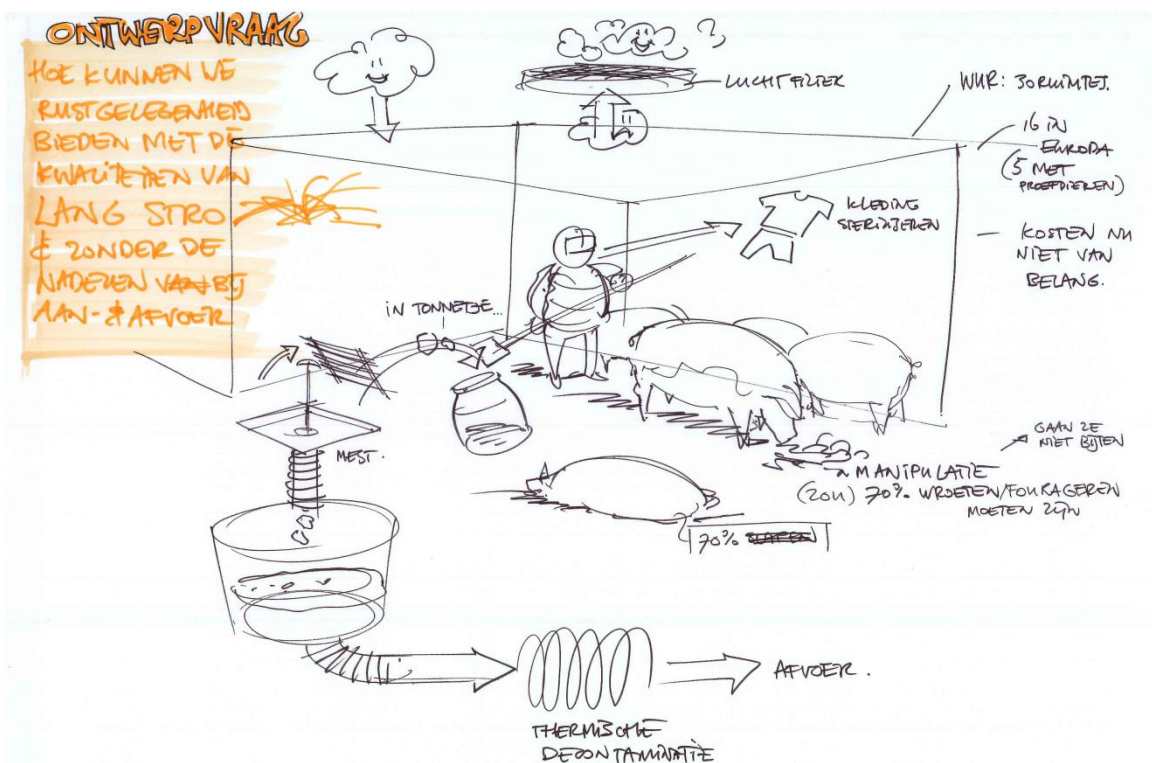 ONTWERPVRAAG
HOE KUNNEN WE
RUSTGELEGENHEID
BIEDEN MET DE
KWALITEITEN VAN
LANG STRO
& ZONDER DE
NADELEN BIJ
AAN- & AFVOER
LUCHTFILTER
WUR: 30 RUIMTES.
16 IN
EUROPA
(5 MET
PROEFDIEREN)
KLEDING
STERILISEREN
KOSTEN NU
NIET VAN
BELANG.
IN TONNETJE...
MEST.
GAAN ZE
NIET BIJTEN
MANIPULATIE
(ZOU) 70% WROETEN/FOURAGEREN
MOETEN ZIJN
70%
AFVOER.
THERMISCHE
DECONTAMINATIE